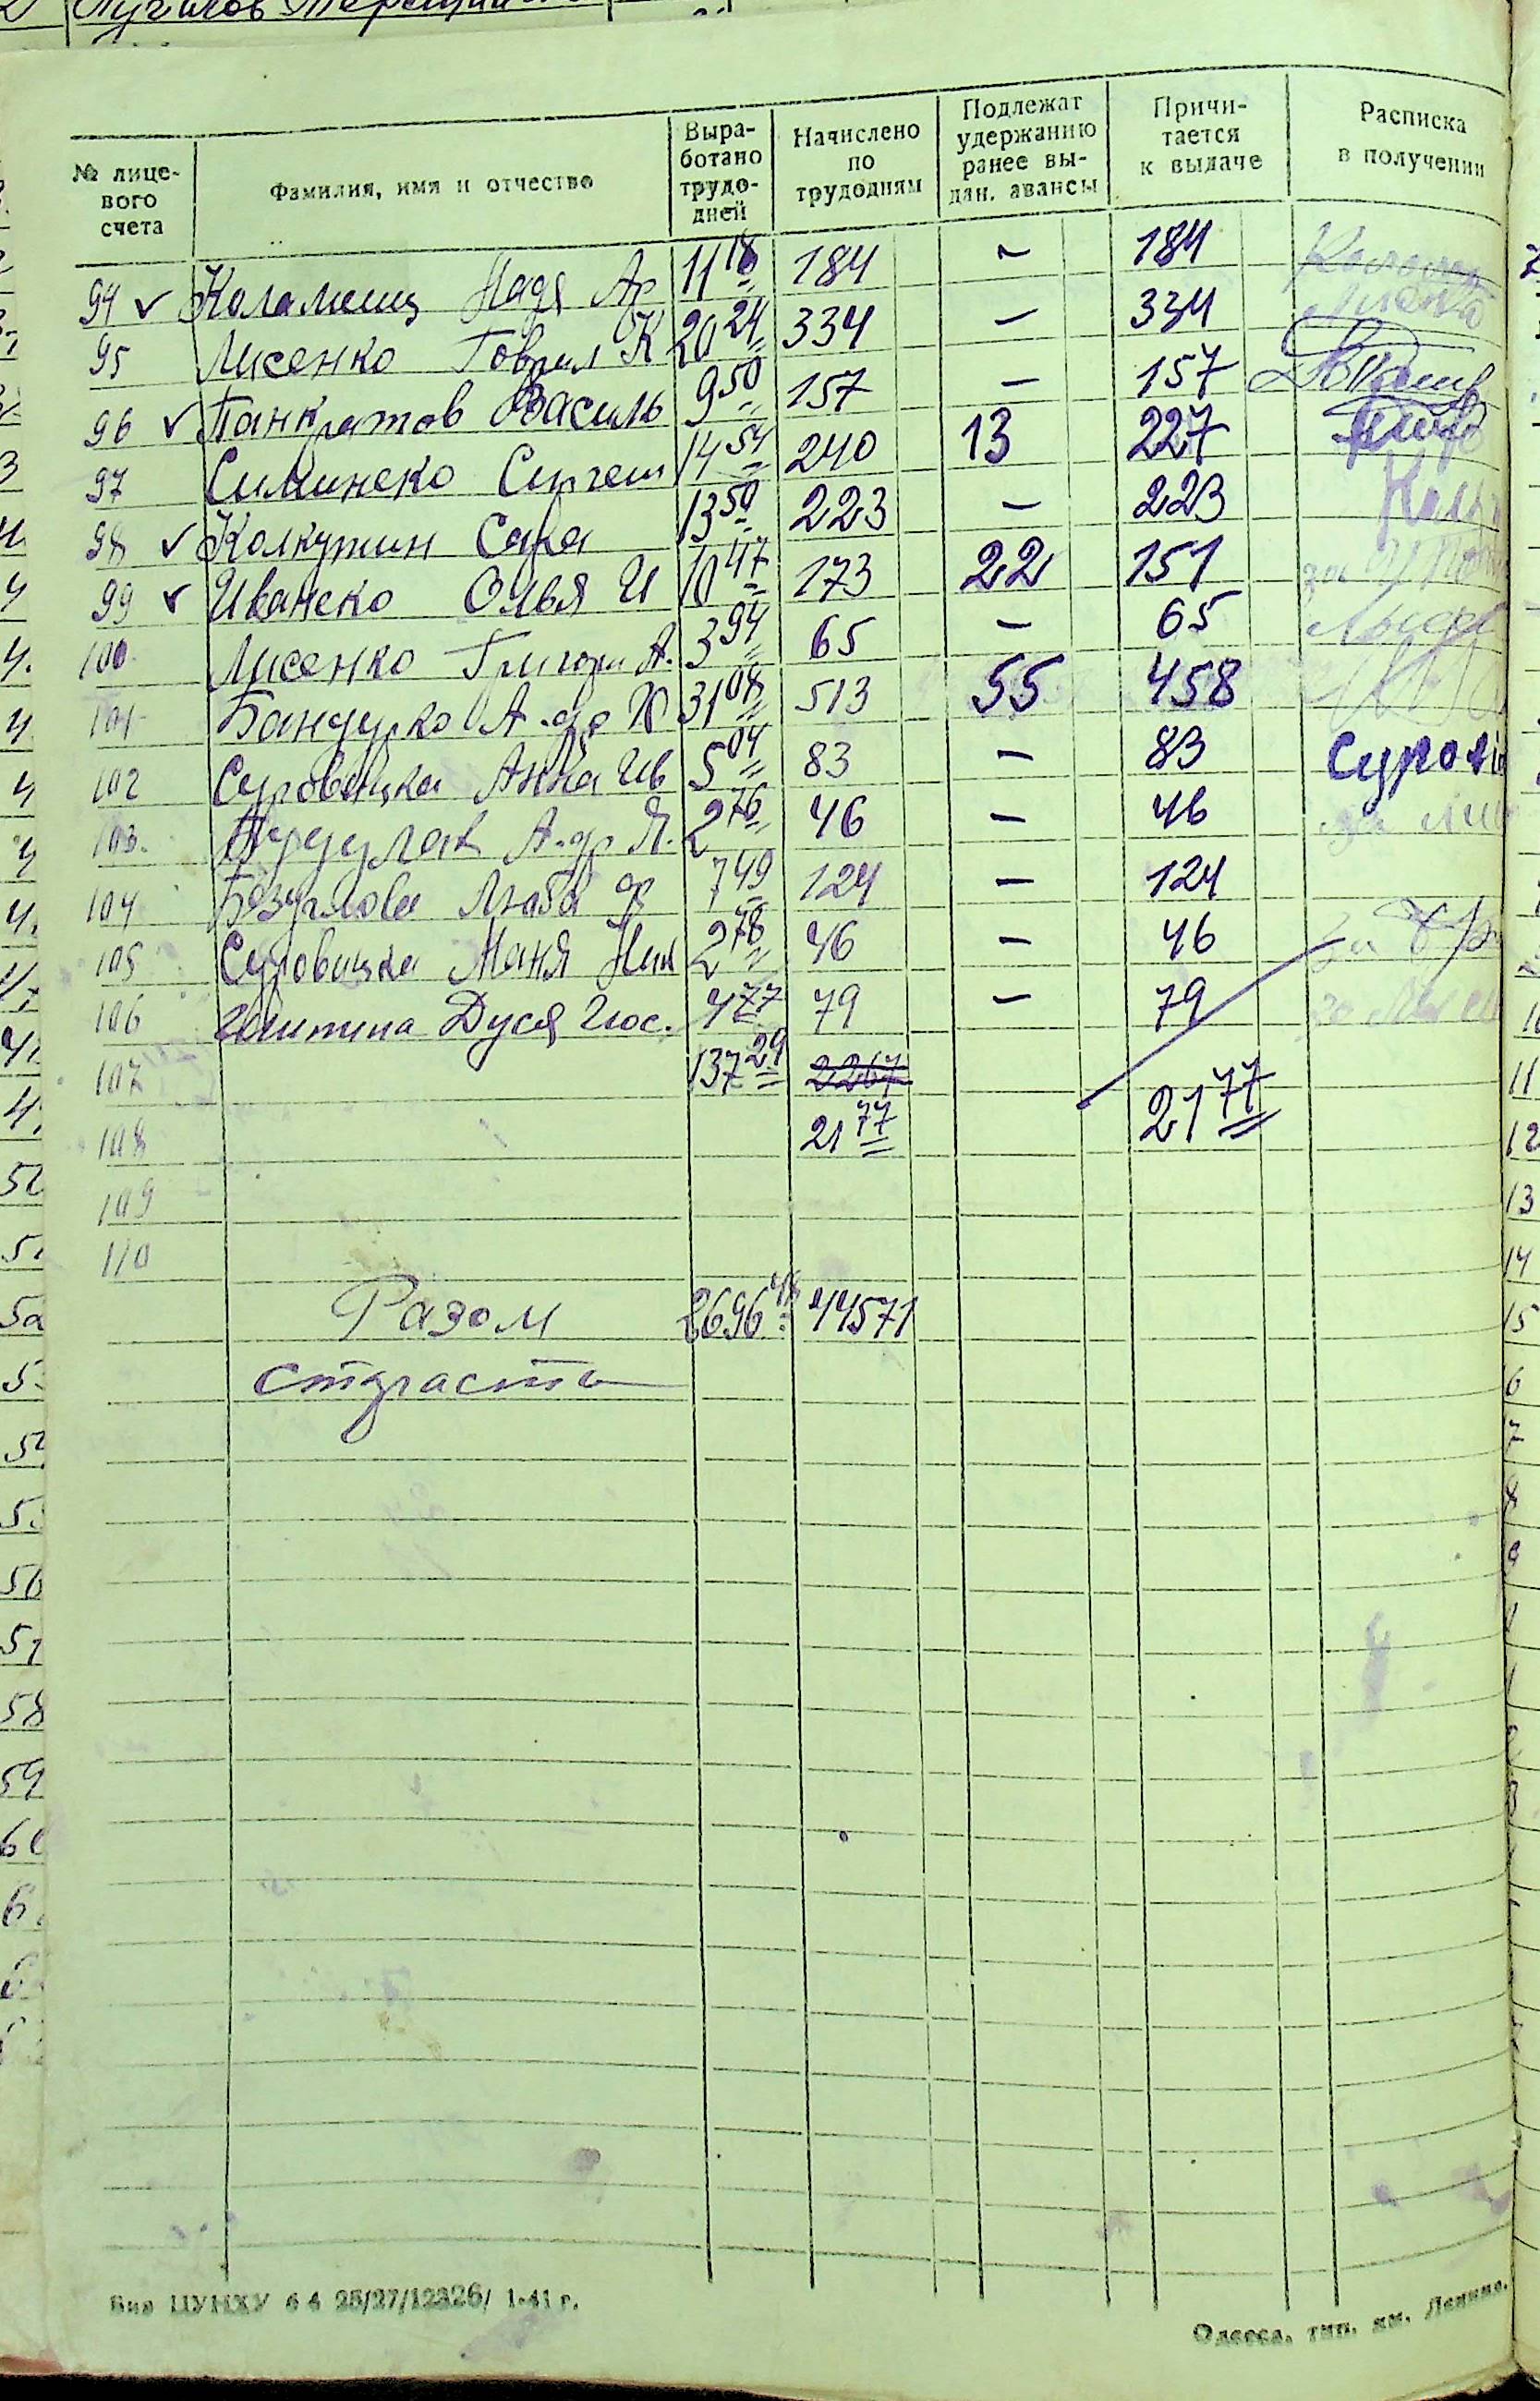 № лицевого счета | Фамилия, имя и отчество | Выработано трудодней | Начислено по трудодням | Подлежат удержанию ранее выдан. авансы | Причитается к выдаче | Расписка в получении
94 ✓ Коламиец Надя Ар 11 18 184 – 184
95 Лисенко Говрил К 20 24 334 – 334
96 ✓ Панкратов Василь 9 50 157 – 157
97 Симинеко Сиргеи 14 54 240 13 227
98 ✓ Колкутин Сава 13 50 223 – 223
99 ✓ Иванеко Ольвя И 10 47 173 22 151
100 Лисенко Григори А. 3 94 65 – 65
101 Бандурко А-др 31 08 513 55 458
102 Суровицка Анна Ив 5 04 83 – 83 Суровіц
103. А-др Я. 2 76 46 – 46
104 Безуглова Люба 7 49 124 – 124
105 Суровицка Маня Ник 2 78 46 – 46
106 Дуся Иос. 4 77 79 – 79
107 137 29 2267
108 21 77 21 77
109
110
Разом 2696 44571
Вид ЦУНХУ 6 4 25/27/12326/ 1-41 г.
Одесса, тип. им. Ленина.